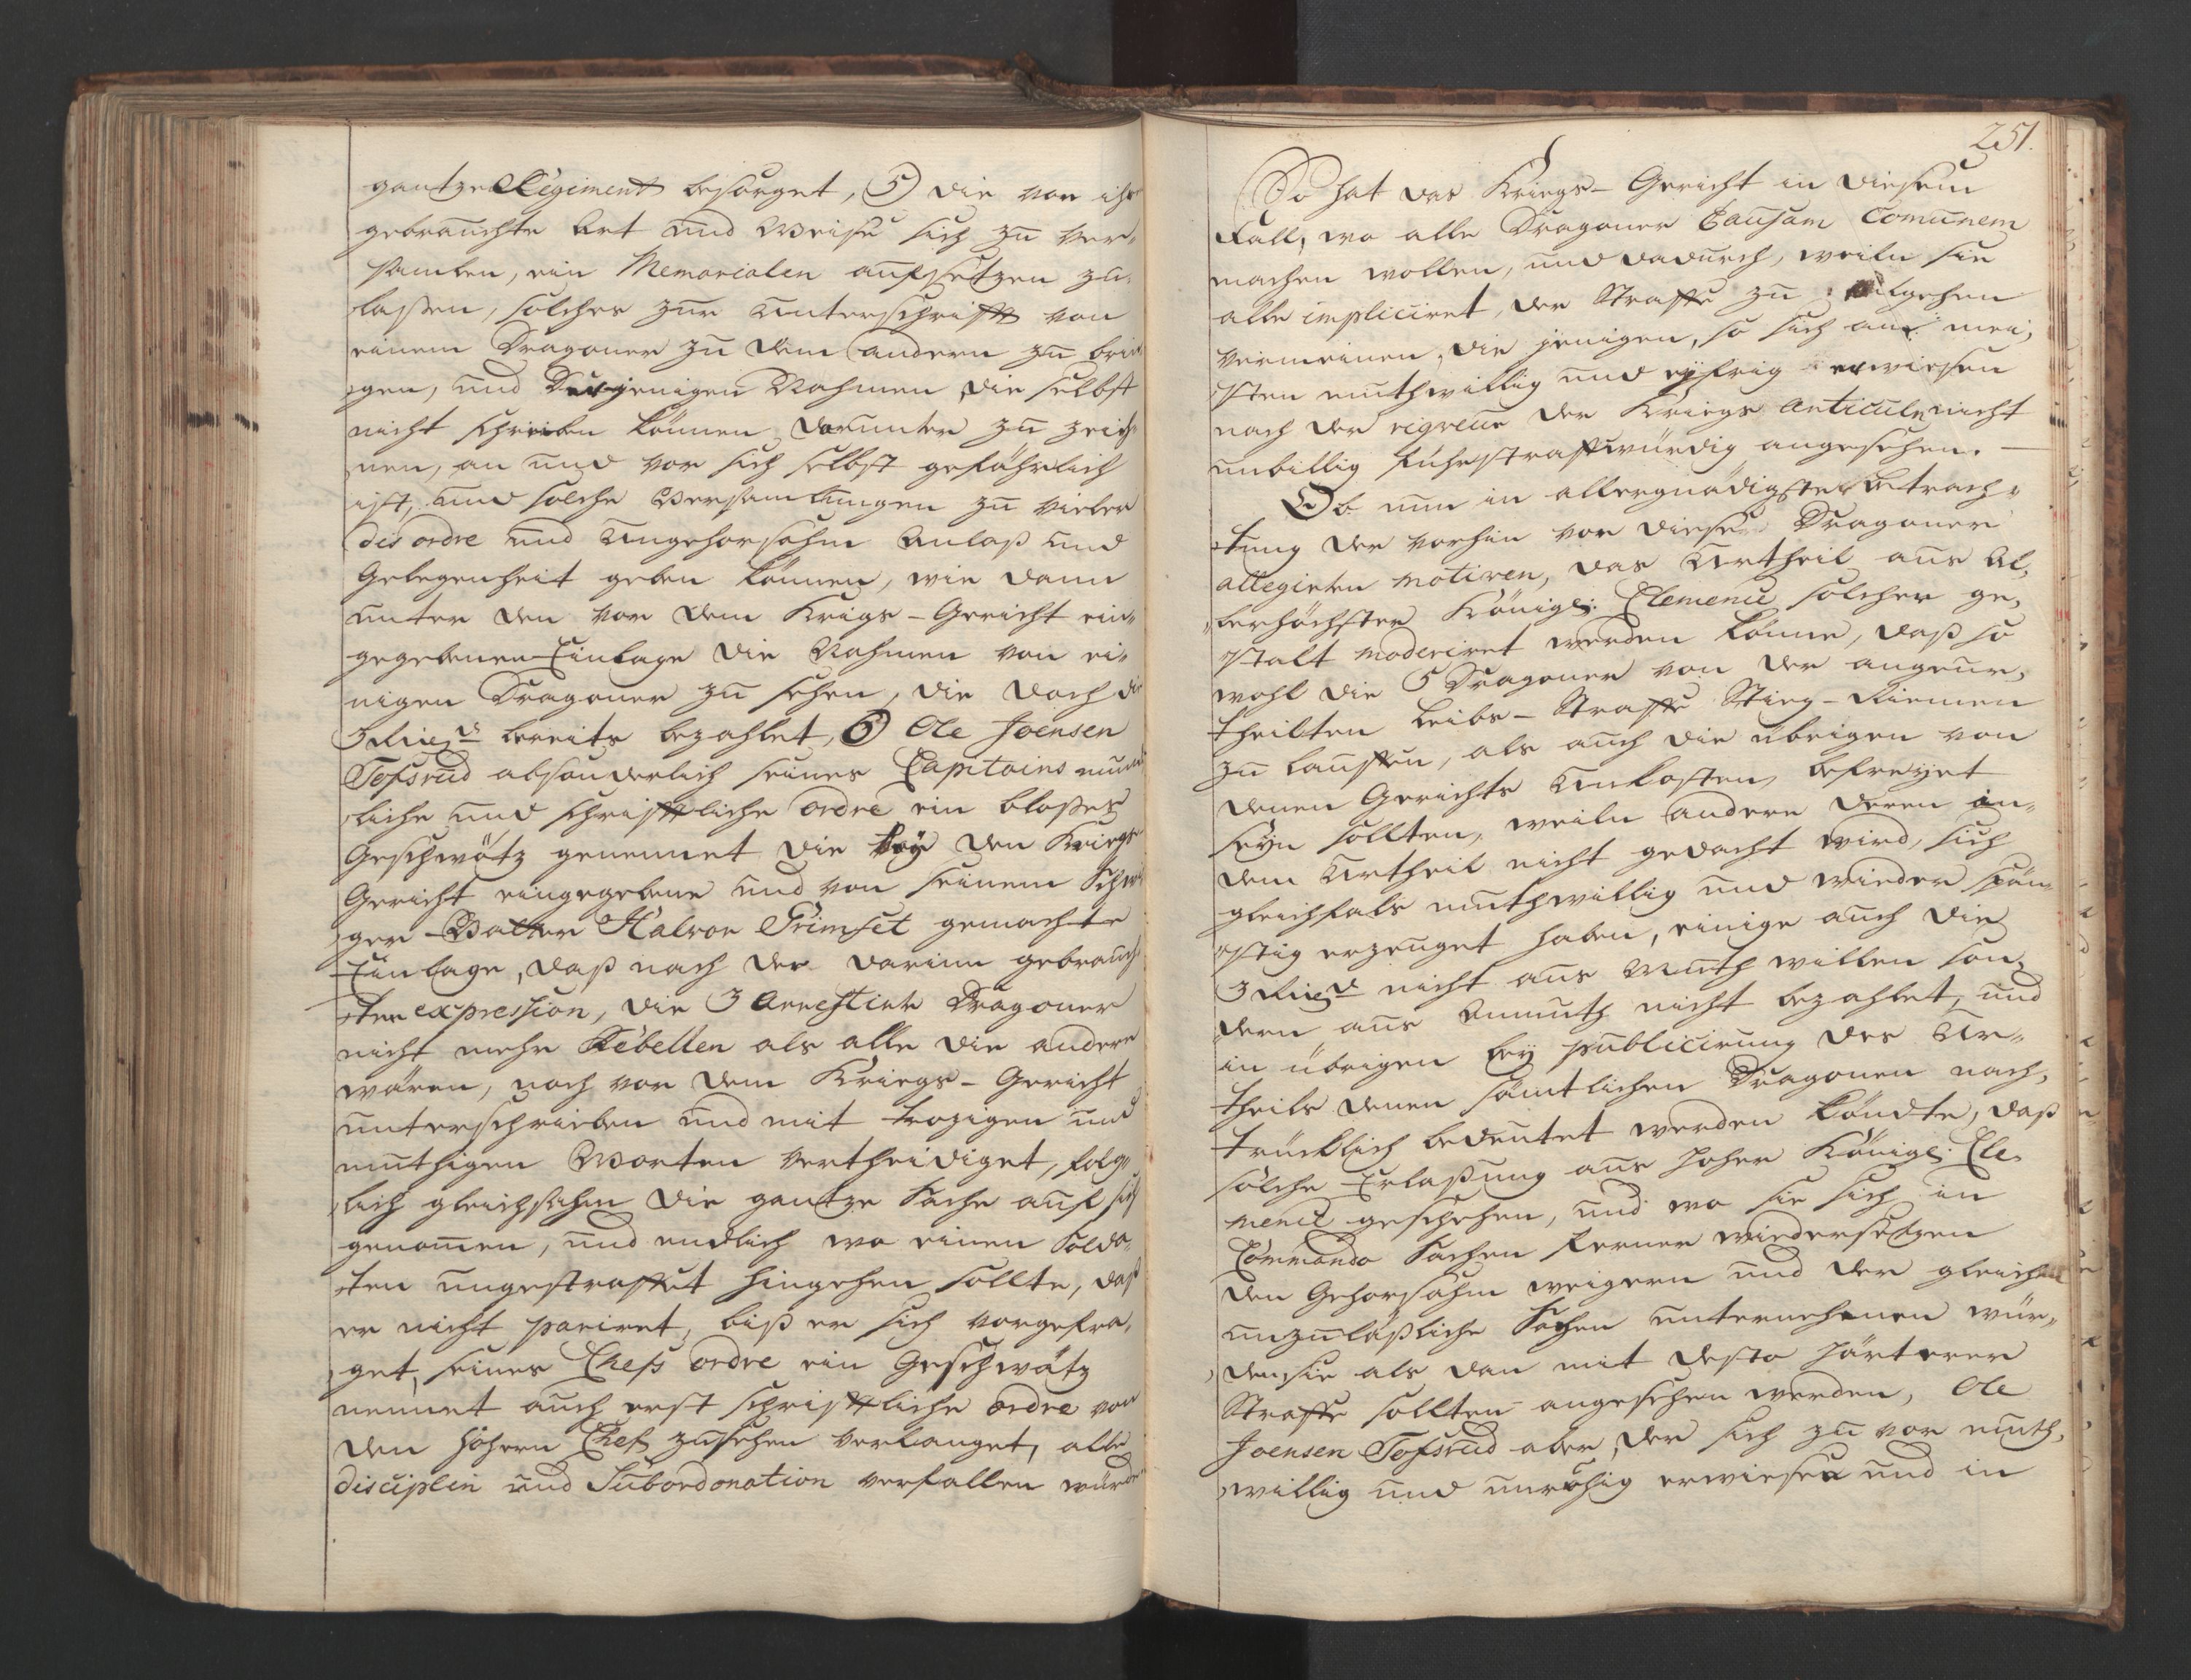 gantze Regiment besorget, 5) die von ihr
gebrauchte Art und Weise sich zu ver-
samlen, ein Memorialen aufsetzen zu
laßen, solches zur Unterschrifft von
einem Dragoner zu dem andern zu brin
gen, und derjenigen Nahmen die selbst
nicht schreiben können darunter zu zeich
nen, an und vor sich selbst gefährlich
ist, und solche Versamlungen zu vieler
disordre und Ungehorsahm Anlaß und
Gelegenheit geben können, wie dann
unter den vor dem Krigs-Gericht ein-
gegebenen Einlage die Nahmen von ei-
nigen Dragoner zu sehen, die doch die
3 Rixd. bereits bezahlet, 6) Ole Joensen
Tofsrud absonderlich seines Capitains münd
liche und schrifftliche ordre ein bloßes
Geschwätz genennet die bey den Kriegs
Gericht eingegebene und von seinem Schwi
ger-Vatter Halvor Grimset gemachte
Einlage, daß nach der darinn gebrauch
ten expression, die 3 Arrestirte Dragoner
nicht mehr Rebellen als alle die andere
wären, noch vor dem Kriegs-Gericht
unterschrieben und mit trozigen und
muthigen Worten vertheidiget, folg-
lich gleichsahm die gantze Sache auf sich
genomen, und endlich wo einen Solda-
ten ungestraffet hingehen sollte, daß
er nicht pariret, biß er sich vorgefra-
get, seines Chefs ordre ein Geschwätz
nennet auch erst schrifftliche ordre von
den höhern Chef zusehen verlanget, alle
disciplin und Subordonation verfallen würde
251.
So hat das Kriegs-Gericht in diesem
Fall, wo alle Dragoner Causam Comunem
machen wollen, und dadurch, weiln sie
alle impliciret, der Straffe zu entgehen
vermeinen, die jenigen, so sich am mei-
sten muthwillig und eyfrig erwiesen
nach der rigreur der Kriegs Articuln nicht
unbillig straffwürdig angesehen.
Ob nun in allergnädigster Betrach-
tung der vorhin von diesen Dragoner
allegirten motiven, das Urtheil aus Al-
lerhöchster Königl: Clemence solcher ge-
stalt moderiret werden könne, daß so
wohl die 5 Dragoner von der angeur-
theilten Leibs-Straffe Steig-Riemen
zu lauffen, als auch die übrigen von
denen Gerichts Unkosten, befreyet
seyn sollten, weiln andere deren in
dem Urtheil nicht gedacht wird, sich
gleichfals muthwillig und wieder spän-
stig erzeuget haben, einige auch die
3 Rixd. nicht aus Muth willen son-
dern aus Armuth nicht bezahlet, und
in übrigen bey publicirung des Ur-
theils denen sämtlichen Dragonen nach-
trücklich bedeutet werden köndte, daß
solche Erlaßung aus hoher Königl: Cle-
mence geschehen, und wo sie sich in
Commando Sachen ferner wiedersetzen
den Gehorsahm weigern und der gleichen
unzuläßliche Sachen unternehmen wür-
den, sie als dan mit desto härterer
Straffe sollten angesehen werden, Ole
Joensen Tofsrud aber, der sich zu vor muth-
willig und unruhig erwiesen und in